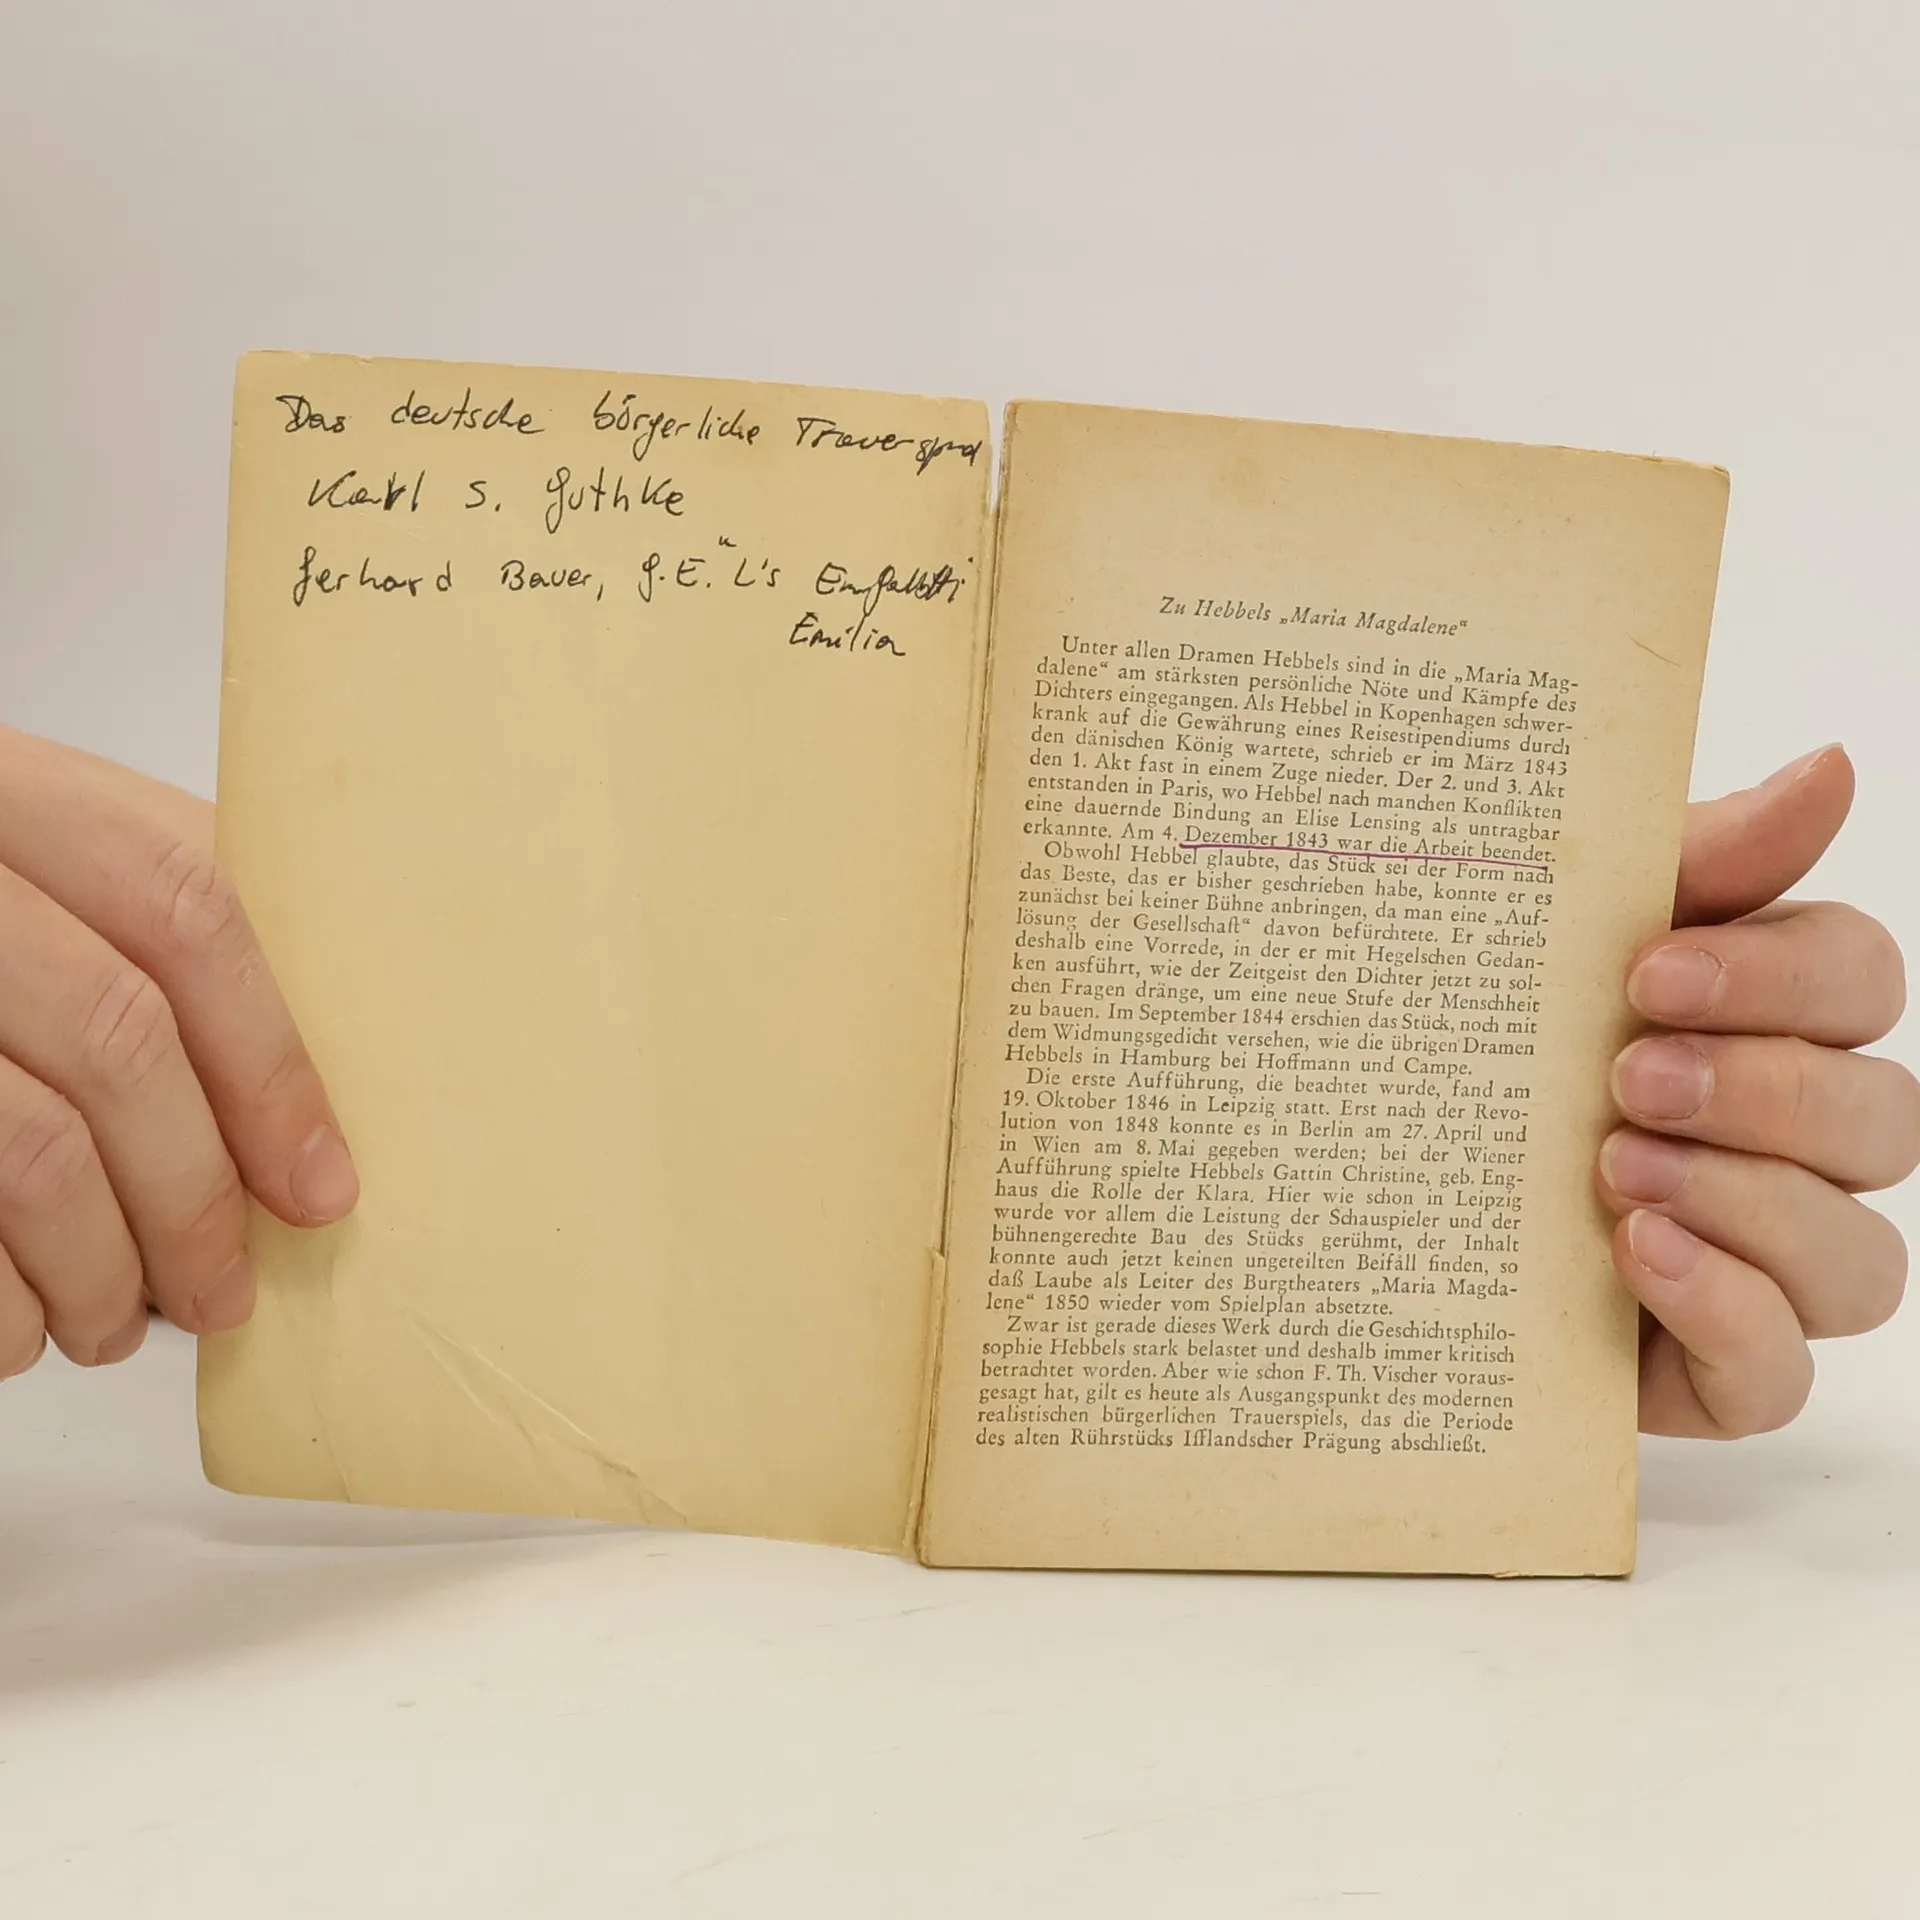 Das deutsche bürgerliche Trauerspiel
Karl S. Guthke
Gerhard Bauer, G.E. L's Galotti
Emilia
Zu Hebbels „Maria Magdalene“
Unter allen Dramen Hebbels sind in die „Maria Mag-
dalene“ am stärksten persönliche Nöte und Kämpfe des
Dichters eingegangen. Als Hebbel in Kopenhagen schwer-
krank auf die Gewährung eines Reisestipendiums durch
den dänischen König wartete, schrieb er im März 1843
den 1. Akt fast in einem Zuge nieder. Der 2. und 3. Akt
entstanden in Paris, wo Hebbel nach manchen Konflikten
eine dauernde Bindung an Elise Lensing als untragbar
erkannte. Am 4. Dezember 1843 war die Arbeit beendet.
Obwohl Hebbel glaubte, das Stück sei der Form nach
das Beste, das er bisher geschrieben habe, konnte er es
zunächst bei keiner Bühne anbringen, da man eine „Auf-
lösung der Gesellschaft“ davon befürchtete. Er schrieb
deshalb eine Vorrede, in der er mit Hegelschen Gedan-
ken ausführt, wie der Zeitgeist den Dichter jetzt zu sol-
chen Fragen dränge, um eine neue Stufe der Menschheit
zu bauen. Im September 1844 erschien das Stück, noch mit
dem Widmungsgedicht versehen, wie die übrigen Dramen
Hebbels in Hamburg bei Hoffmann und Campe.
Die erste Aufführung, die beachtet wurde, fand am
19. Oktober 1846 in Leipzig statt. Erst nach der Revo-
lution von 1848 konnte es in Berlin am 27. April und
in Wien am 8. Mai gegeben werden; bei der Wiener
Aufführung spielte Hebbels Gattin Christine, geb. Eng-
haus die Rolle der Klara. Hier wie schon in Leipzig
wurde vor allem die Leistung der Schauspieler und der
bühnengerechte Bau des Stücks gerühmt, der Inhalt
konnte auch jetzt keinen ungeteilten Beifall finden, so
daß Laube als Leiter des Burgtheaters „Maria Magda-
lene“ 1850 wieder vom Spielplan absetzte.
Zwar ist gerade dieses Werk durch die Geschichtsphilo-
sophie Hebbels stark belastet und deshalb immer kritisch
betrachtet worden. Aber wie schon F. Th. Vischer voraus-
gesagt hat, gilt es heute als Ausgangspunkt des modernen
realistischen bürgerlichen Trauerspiels, das die Periode
des alten Rührstücks Ifflandscher Prägung abschließt.